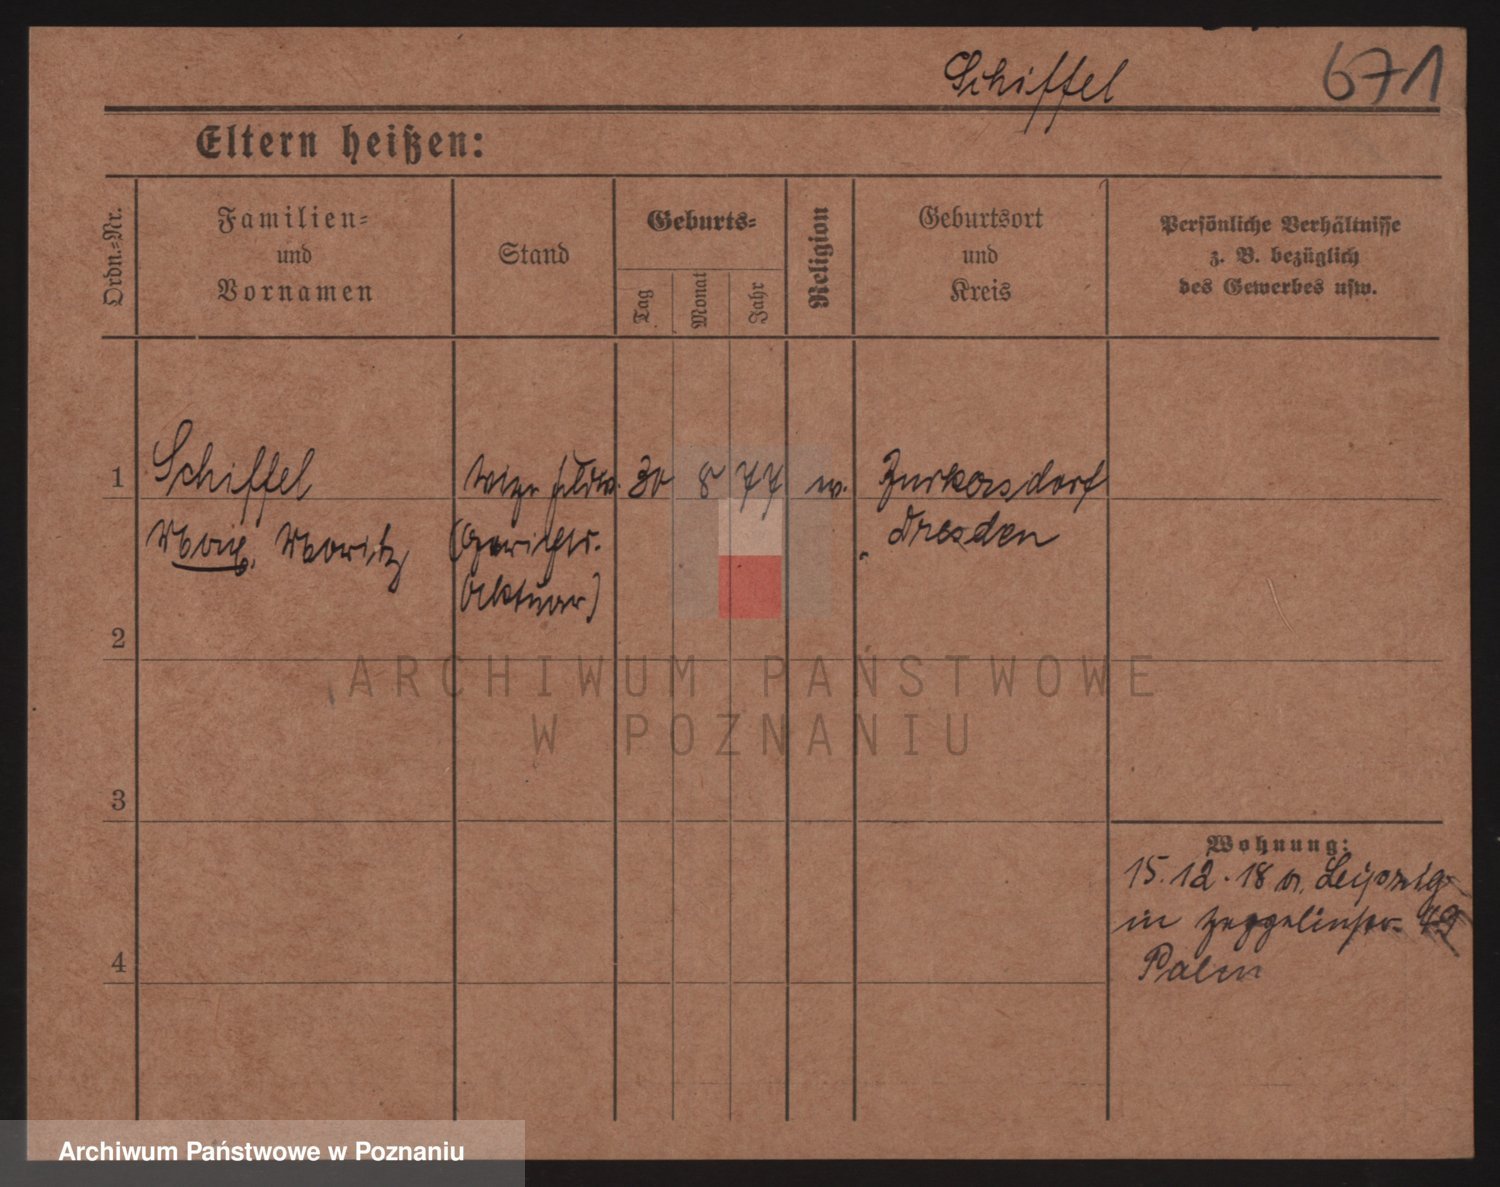 Schiffel 671
Eltern heißen:
Ordn.=Nr.
Familien=
und
Vornamen
Stand
Geburts=
Tag
Monat
Jahr
Religion
Geburtsort
und
Kreis
Persönliche Verhältnisse
z. B. bezüglich
des Gewerbes usw.
1 Schiffel Vize 30 8 77 ev.
Moritz (Gerichts-
Dresden
Aktuar)
2
ARCHIWUM PAŃSTWOWE
W POZNANIU
3
Wohnung:
15.12.18 n. Leipzig
in Zeppelinstr. 49
4
Archiwum Państwowe w Poznaniu